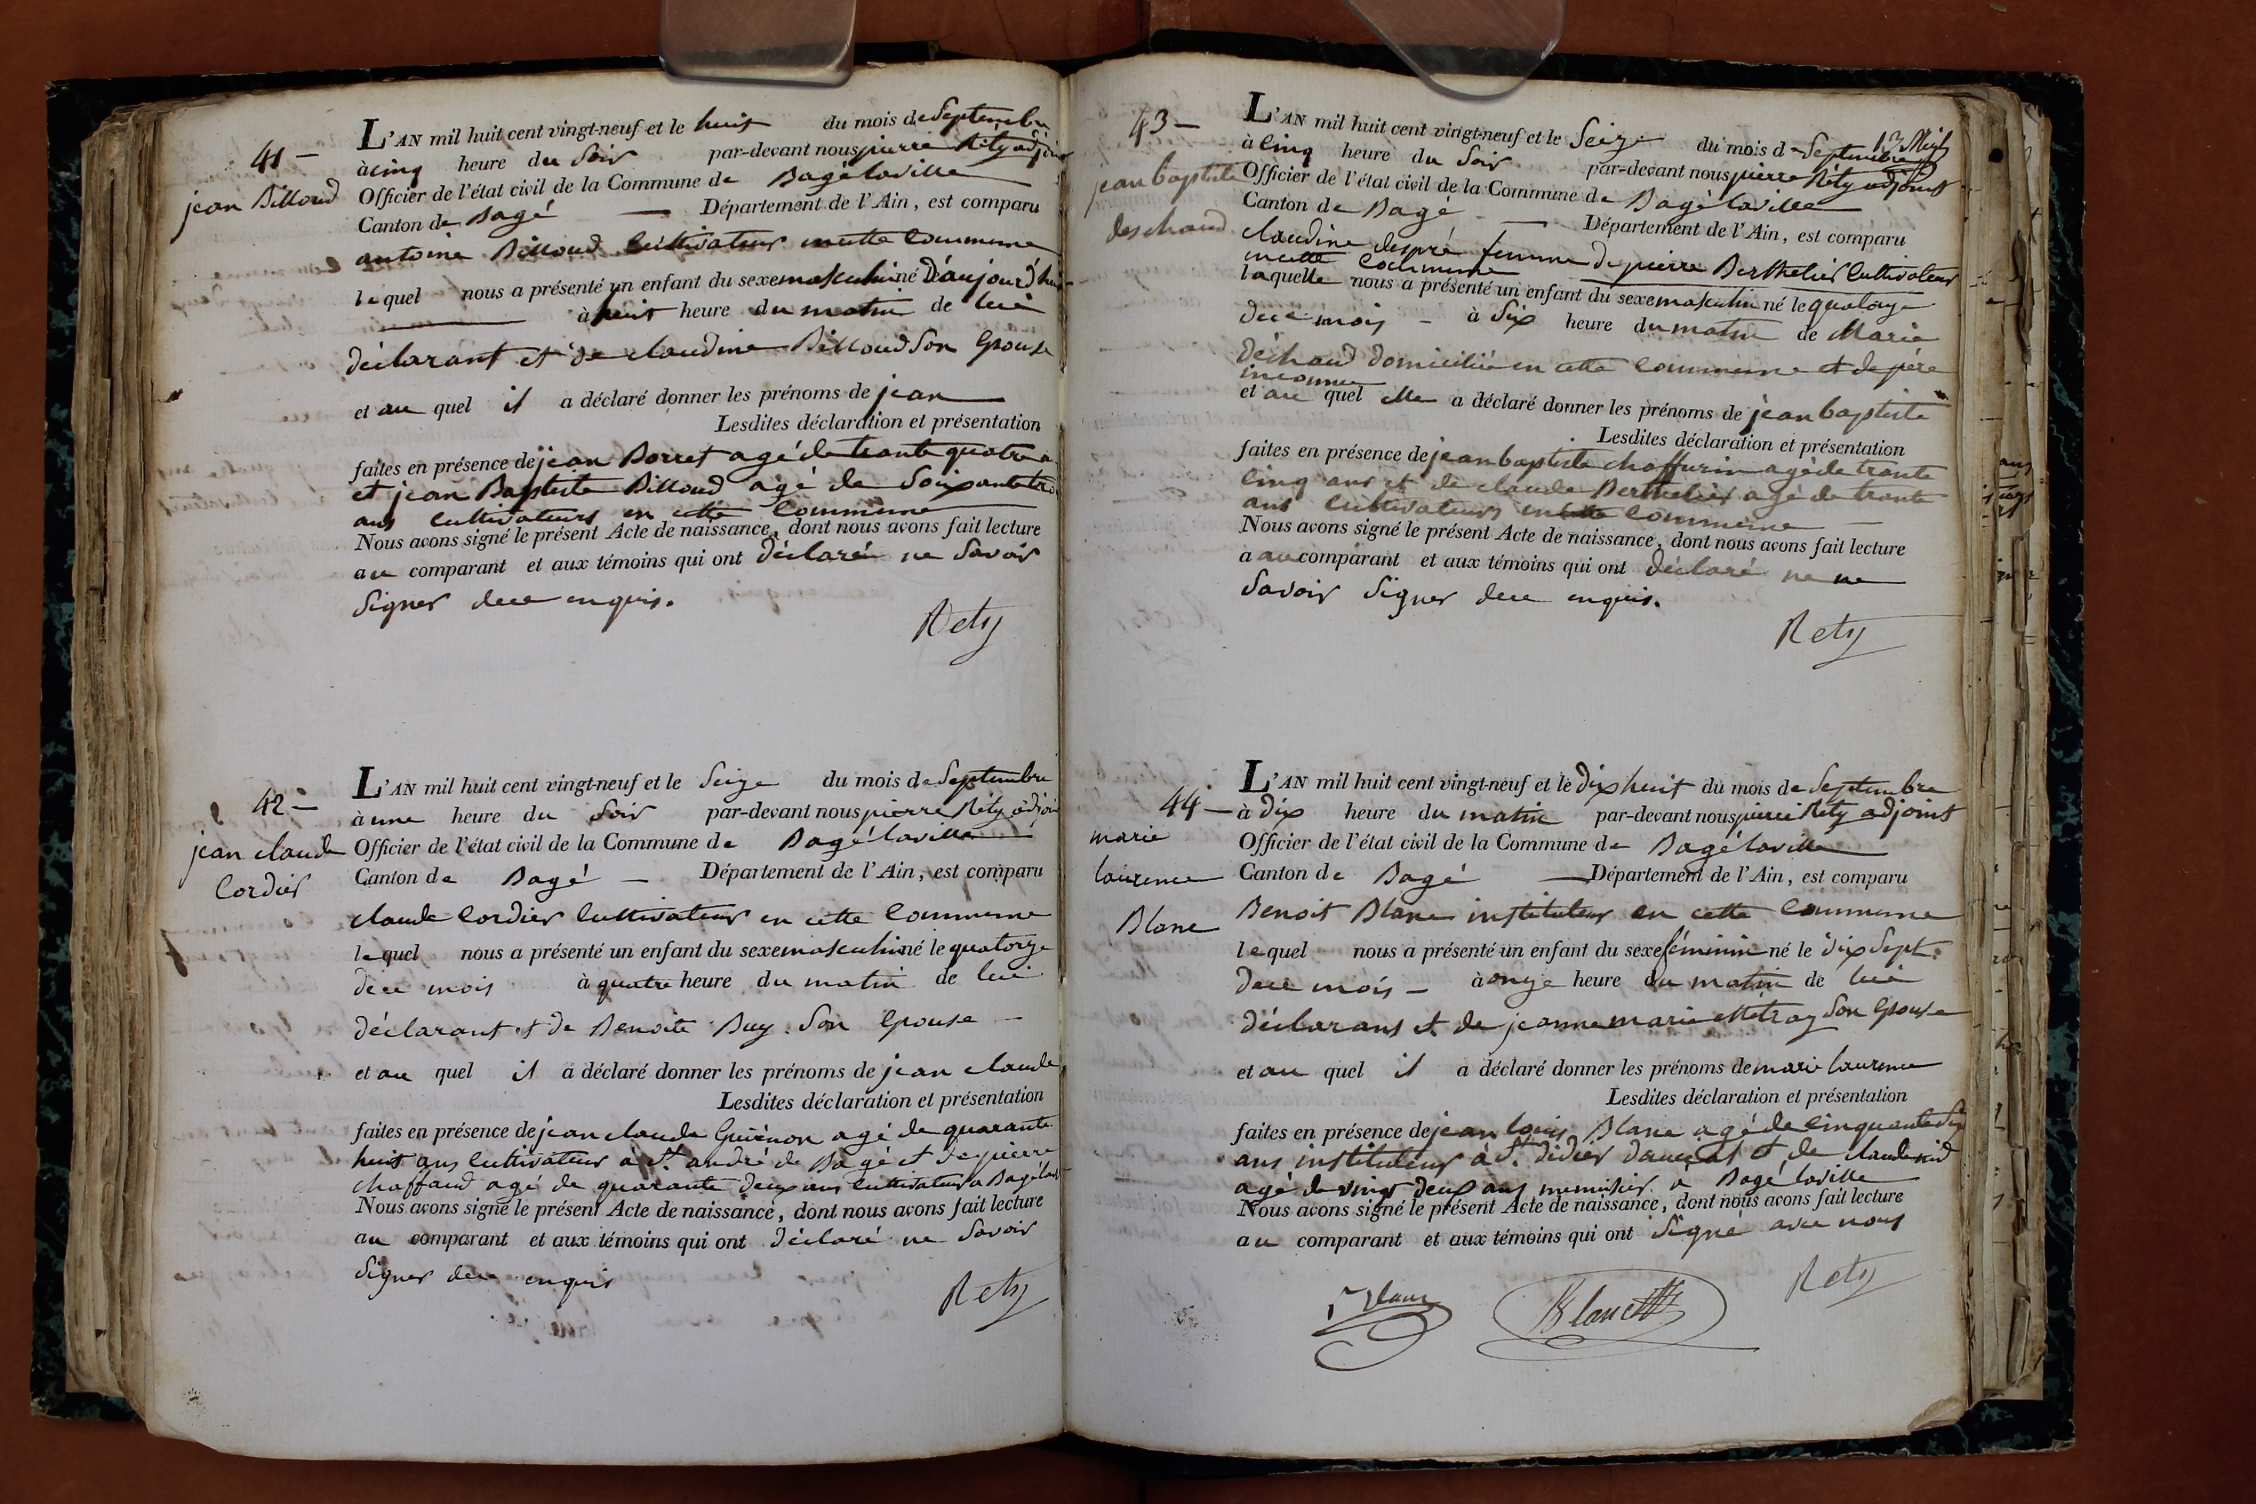 41 —
jean Billoud
L'AN mil huit cent vingt-neuf et le huit du mois de Septembre
à cinq heure du Soir par-devant nous pierre Réty adjoint
Officier de l'état civil de la Commune de Bagé laville
Canton de Bagé — Département de l'Ain, est comparu
antoine Billoud Cultivateur en cette Commune
lequel nous a présenté un enfant du sexe masculin né D'aujourd'hui
à huit heure du matin de lui
déclarant et de claudine Billoud Son Epouse
et au quel il a déclaré donner les prénoms de jean
Lesdites déclaration et présentation
faites en présence de jean Borret agé de trante quatre a
et jean Baptiste Billoud agé de Soixante troi
ans Cultivateurs en cette Commune
Nous avons signé le présent Acte de naissance, dont nous avons fait lecture
au comparant et aux témoins qui ont déclaré ne Savoir
Signer dece enquis.
Rety
42 —
jean claude
Cordier
L'AN mil huit cent vingt-neuf et le Seize du mois de Septembre
à une heure du Soir par-devant nous pierre Réty adjoin
Officier de l'état civil de la Commune de Bagé laville
Canton de Bagé — Département de l'Ain, est comparu
claude Cordier Cultivateur en cette Commune
lequel nous a présenté un enfant du sexe masculin né le quatorze
dece mois à quatre heure du matin de lui
déclarant et de Benoite Buy Son Epouse —
et au quel il a déclaré donner les prénoms de jean claude
Lesdites déclaration et présentation
faites en présence de jean claude Guénon agé de quarante
huit ans Cultivateur à St. andré de Bagé et de pierre
Chaffaud agé de quarante deux ans Cultivateur a Bagé lavil
Nous avons signé le présent Acte de naissance, dont nous avons fait lecture
au comparant et aux témoins qui ont déclaré ne Savoir
Signer dece enquis
Rety
43 —
jean baptiste
deschaud
L'AN mil huit cent vingt-neuf et le Seize du mois de Septembre
à Cinq heure du Soir par-devant nous pierre Réty adjoint
Officier de l'état civil de la Commune de Bagé laville
Canton de Bagé — Département de l'Ain, est comparu
claudine despré femme de pierre Berthelier Cultivateur
en cette Commune
laquelle nous a présenté un enfant du sexe masculin né le quatorze
dece mois — à Six heure du matin de Marie
déchaud domiciliée en cette Commune et de père
inconnu
et au quel elle a déclaré donner les prénoms de jean baptiste
Lesdites déclaration et présentation
faites en présence de jean baptiste chaffurin agé de trante
Cinq ans et de claude Berthelier agé de trante
ans Cultivateurs en cette Commune
Nous avons signé le présent Acte de naissance, dont nous avons fait lecture
a au comparant et aux témoins qui ont déclaré ne ne
Savoir Signer dece enquis.
Rety
44 —
marie
laurence
Blanc
L'AN mil huit cent vingt-neuf et le dix huit du mois de Septembre
à dix heure du matin par-devant nous pierre Réty adjoint
Officier de l'état civil de la Commune de Bagé laville
Canton de Bagé — Département de l'Ain, est comparu
Benoit Blanc instituteur en cette Commune
lequel nous a présenté un enfant du sexe féminin né le dix Sept
dece mois — à onze heure du matin de lui
déclarans et de jeanne marie Métray Son Epouse
et au quel il a déclaré donner les prénoms de marie laurence
Lesdites déclaration et présentation
faites en présence de jean louis Blanc agé de Cinquante Six
ans instituteur à St. didier daussiat et de claude nid
agé de vingt deux ans menuisier a Bagé laville
Nous avons signé le présent Acte de naissance, dont nous avons fait lecture
au comparant et aux témoins qui ont Signé avec nous
Blanc Blanc Rety